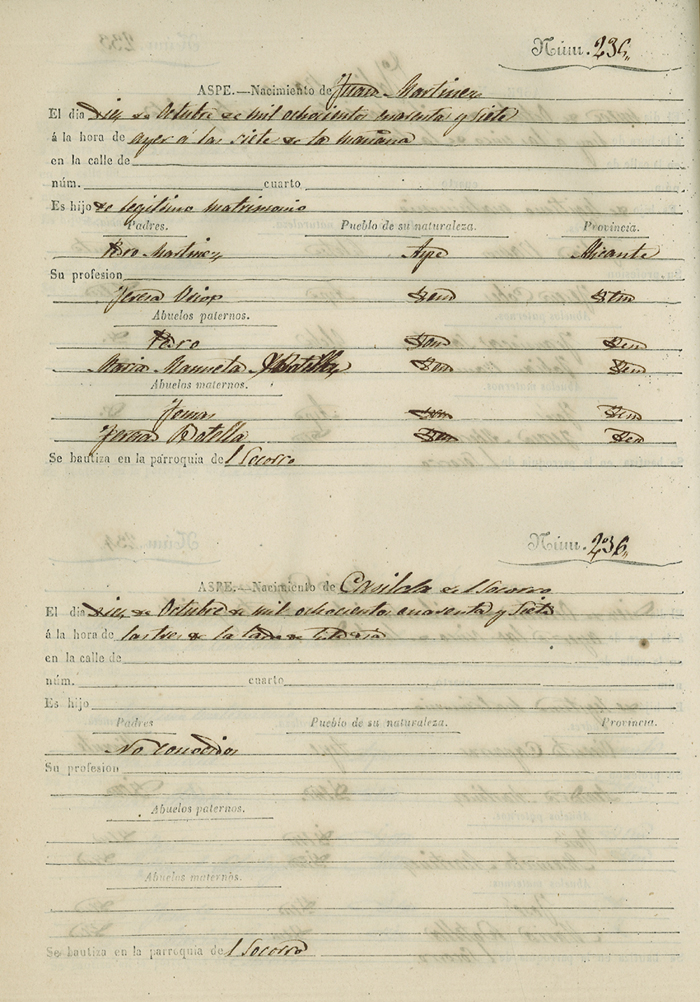 Núm. 235,
ASPE.—Nacimiento de Juan Martinez
El dia diez de Octubre de mil ochociento cuarenta y siete
á la hora de ayer á las siete de la mañana
en la calle de
núm. cuarto
Es hijo de legitimo matrimonio
Padres. Pueblo de su naturaleza. Provincia.
Pedro Martinez Aspe Alicante
Su profesion
Teresa Idem Idem
Abuelos paternos.
Pedro Idem Idem
Maria Manuela Botella Idem Idem
Abuelos maternos.
Tomas Idem Idem
Teresa Botella Idem Idem
Se bautiza en la parroquia del Socorro
Núm. 236,
ASPE.—Nacimiento de Casilda del Socorro
El dia diez de Octubre de mil ochociento cuarenta y siete
á la hora de las tres de la tarde de este dia
en la calle de
núm. cuarto
Es hijo
Padres Pueblo de su naturaleza. Provincia.
No conocidos
Su profesion
Abuelos paternos.
Abuelos maternos.
Se bautiza en la parroquia del Socorro